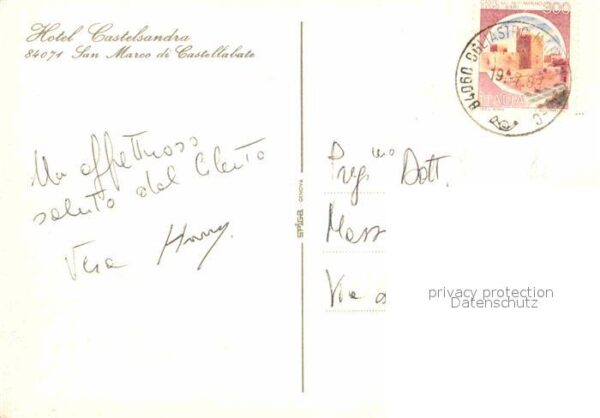 Hotel Castelsandra
84071 San Marco di Castellabate
Un affettuoso
saluto dal Cilento
Vera Harry.
spiga GENOVA
300
ITALIA
84060 OGLIASTRO
Preg.mo Dott.
Mass
Via
privacy protection
Datenschutz